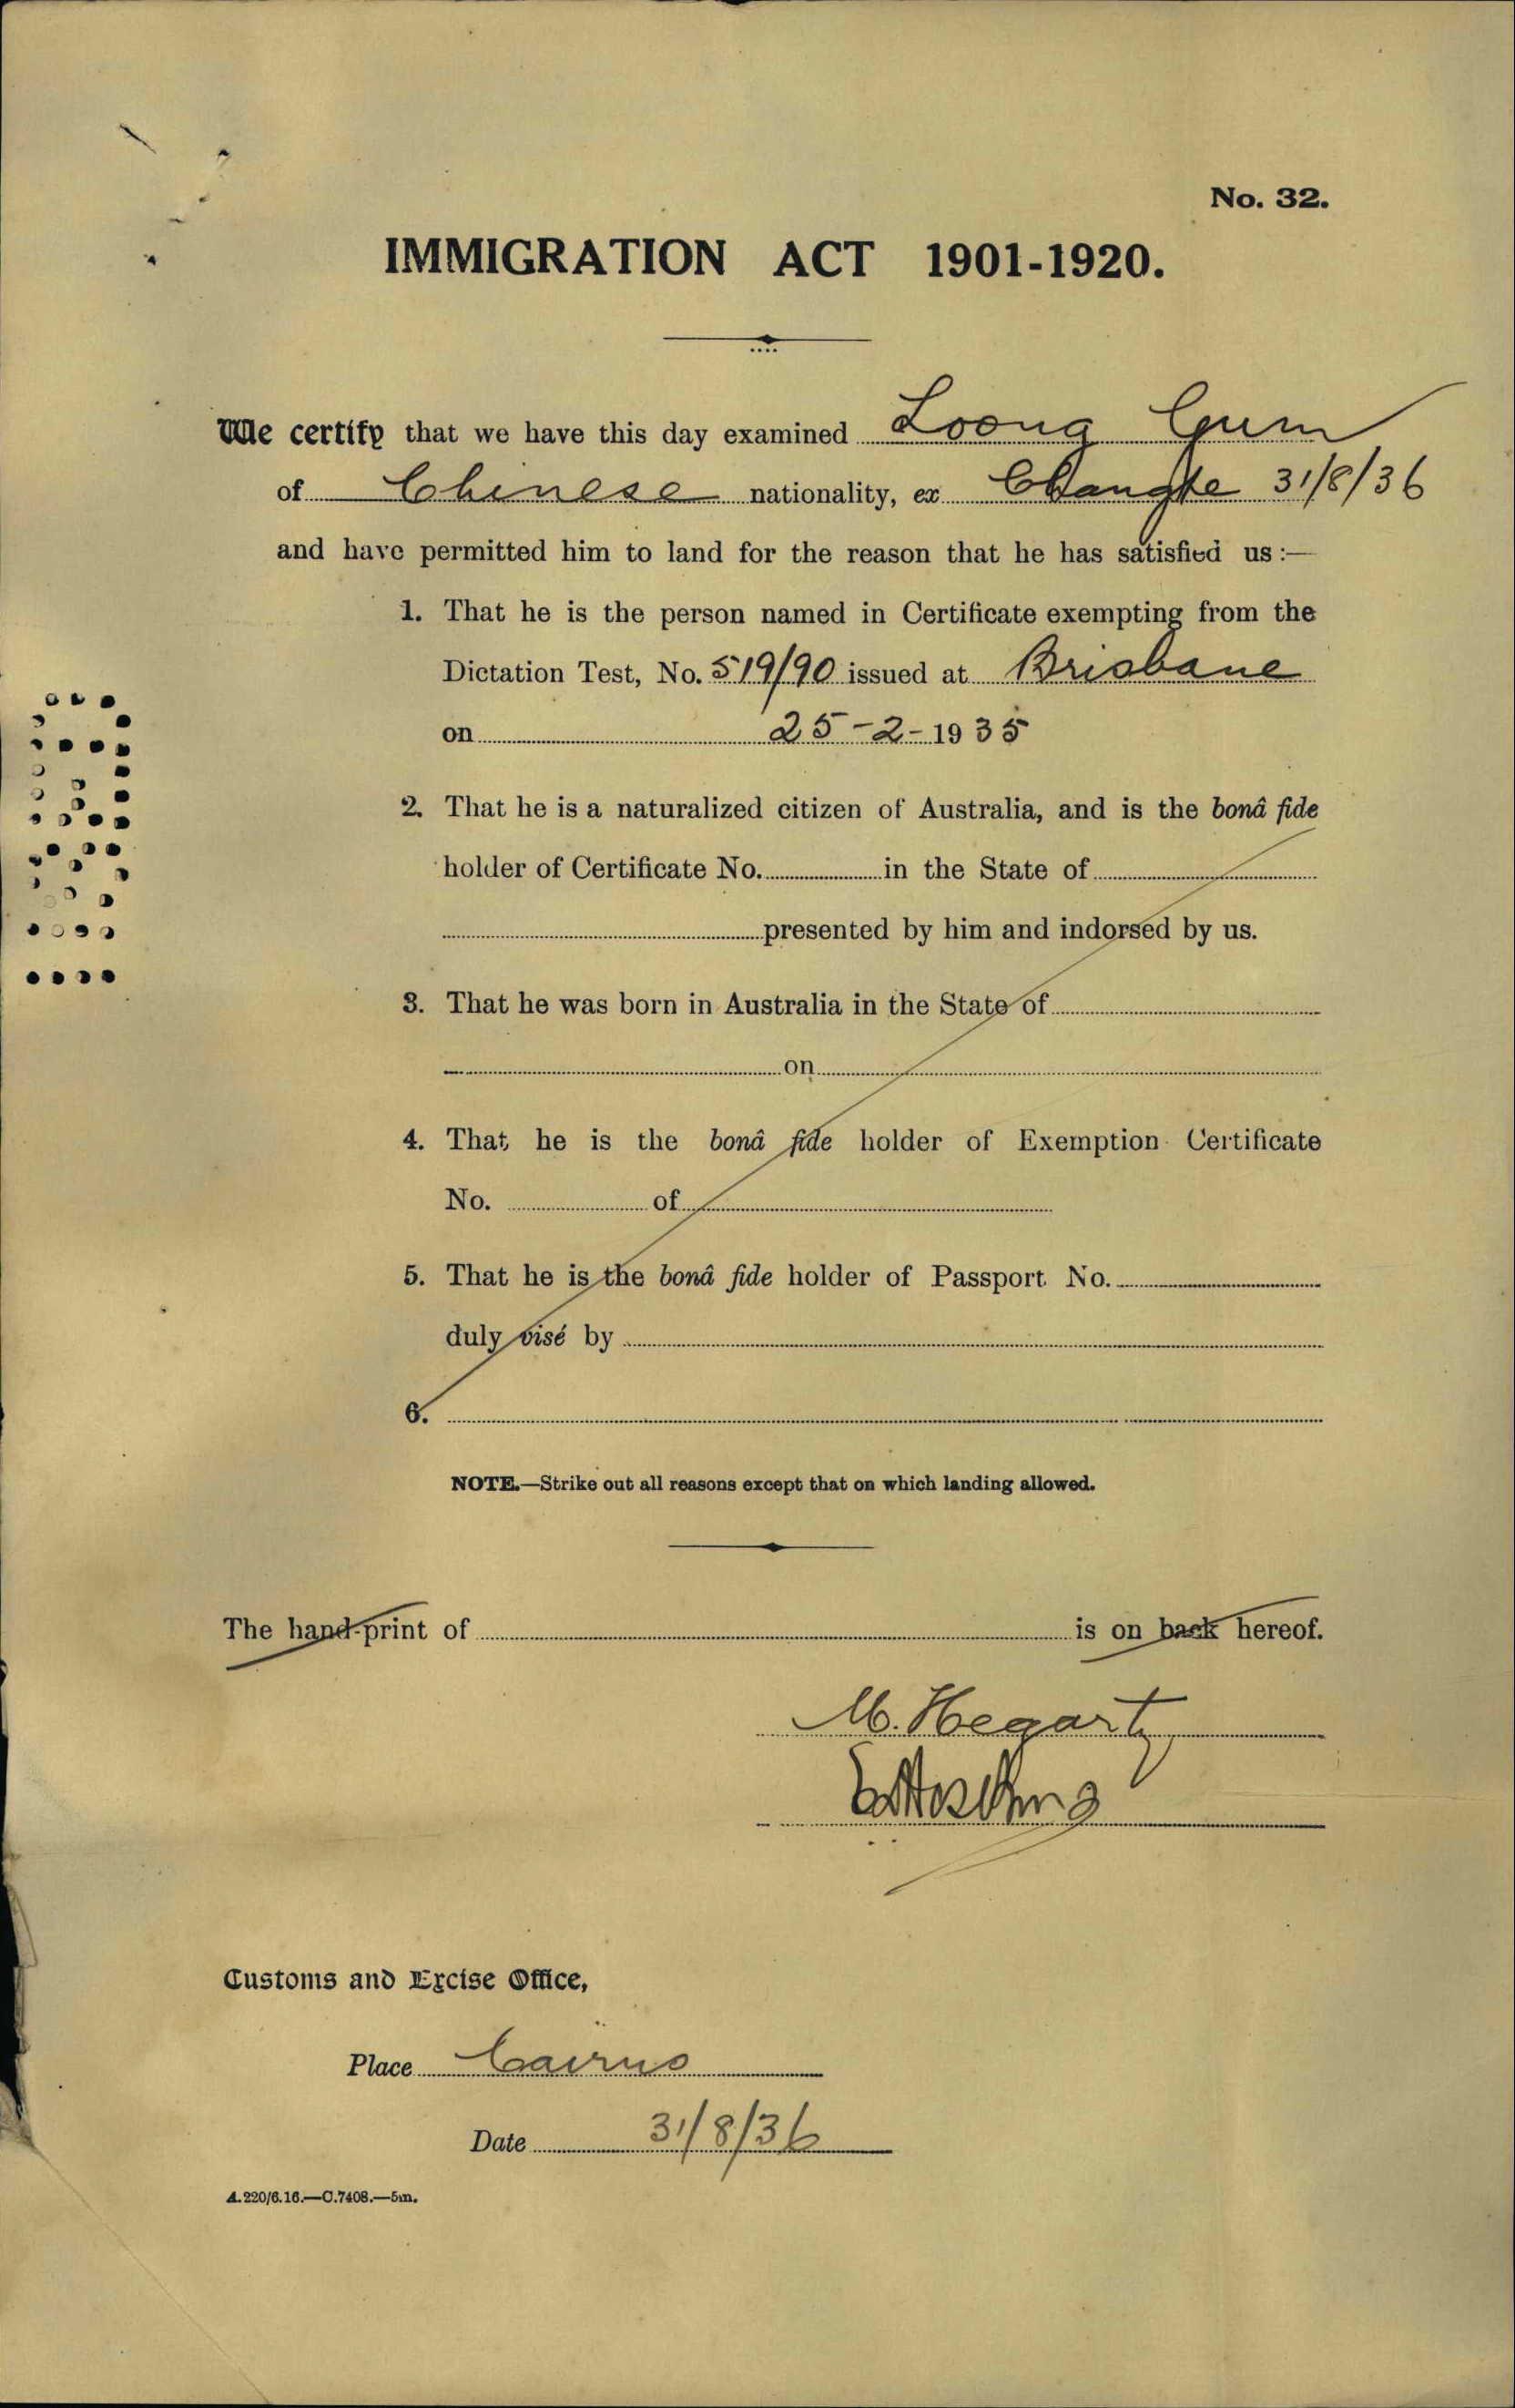 No. 32.
IMMIGRATION ACT 1901-1920.
We certify that we have this day examined Loong Gum
of Chinese nationality, ex Changte 31/8/36
and have permitted him to land for the reason that he has satisfied us:—
1. That he is the person named in Certificate exempting from the
Dictation Test, No. 519/90 issued at Brisbane
on 25-2-1935
2. That he is a naturalized citizen of Australia, and is the bonâ fide
holder of Certificate No. in the State of
presented by him and indorsed by us.
3. That he was born in Australia in the State of
on
4. That he is the bonâ fide holder of Exemption Certificate
No. of
5. That he is the bonâ fide holder of Passport No.
duly visé by
6.
NOTE.—Strike out all reasons except that on which landing allowed.
The hand-print of is on back hereof.
M. Hegarty
Customs and Excise Office,
Place Cairns
Date 31/8/36
A.220/6.16.—C.7408.—5m.